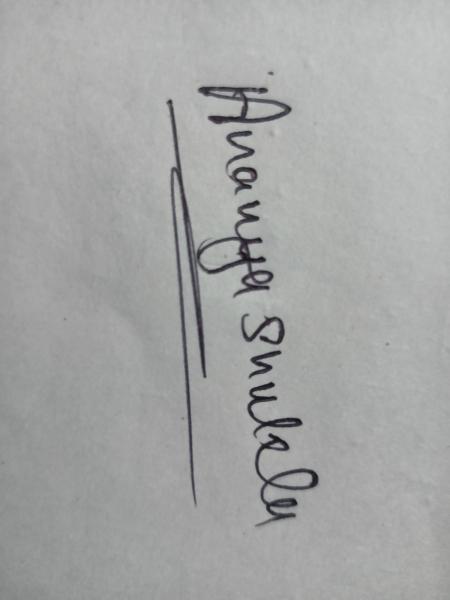 Ananya Shukla